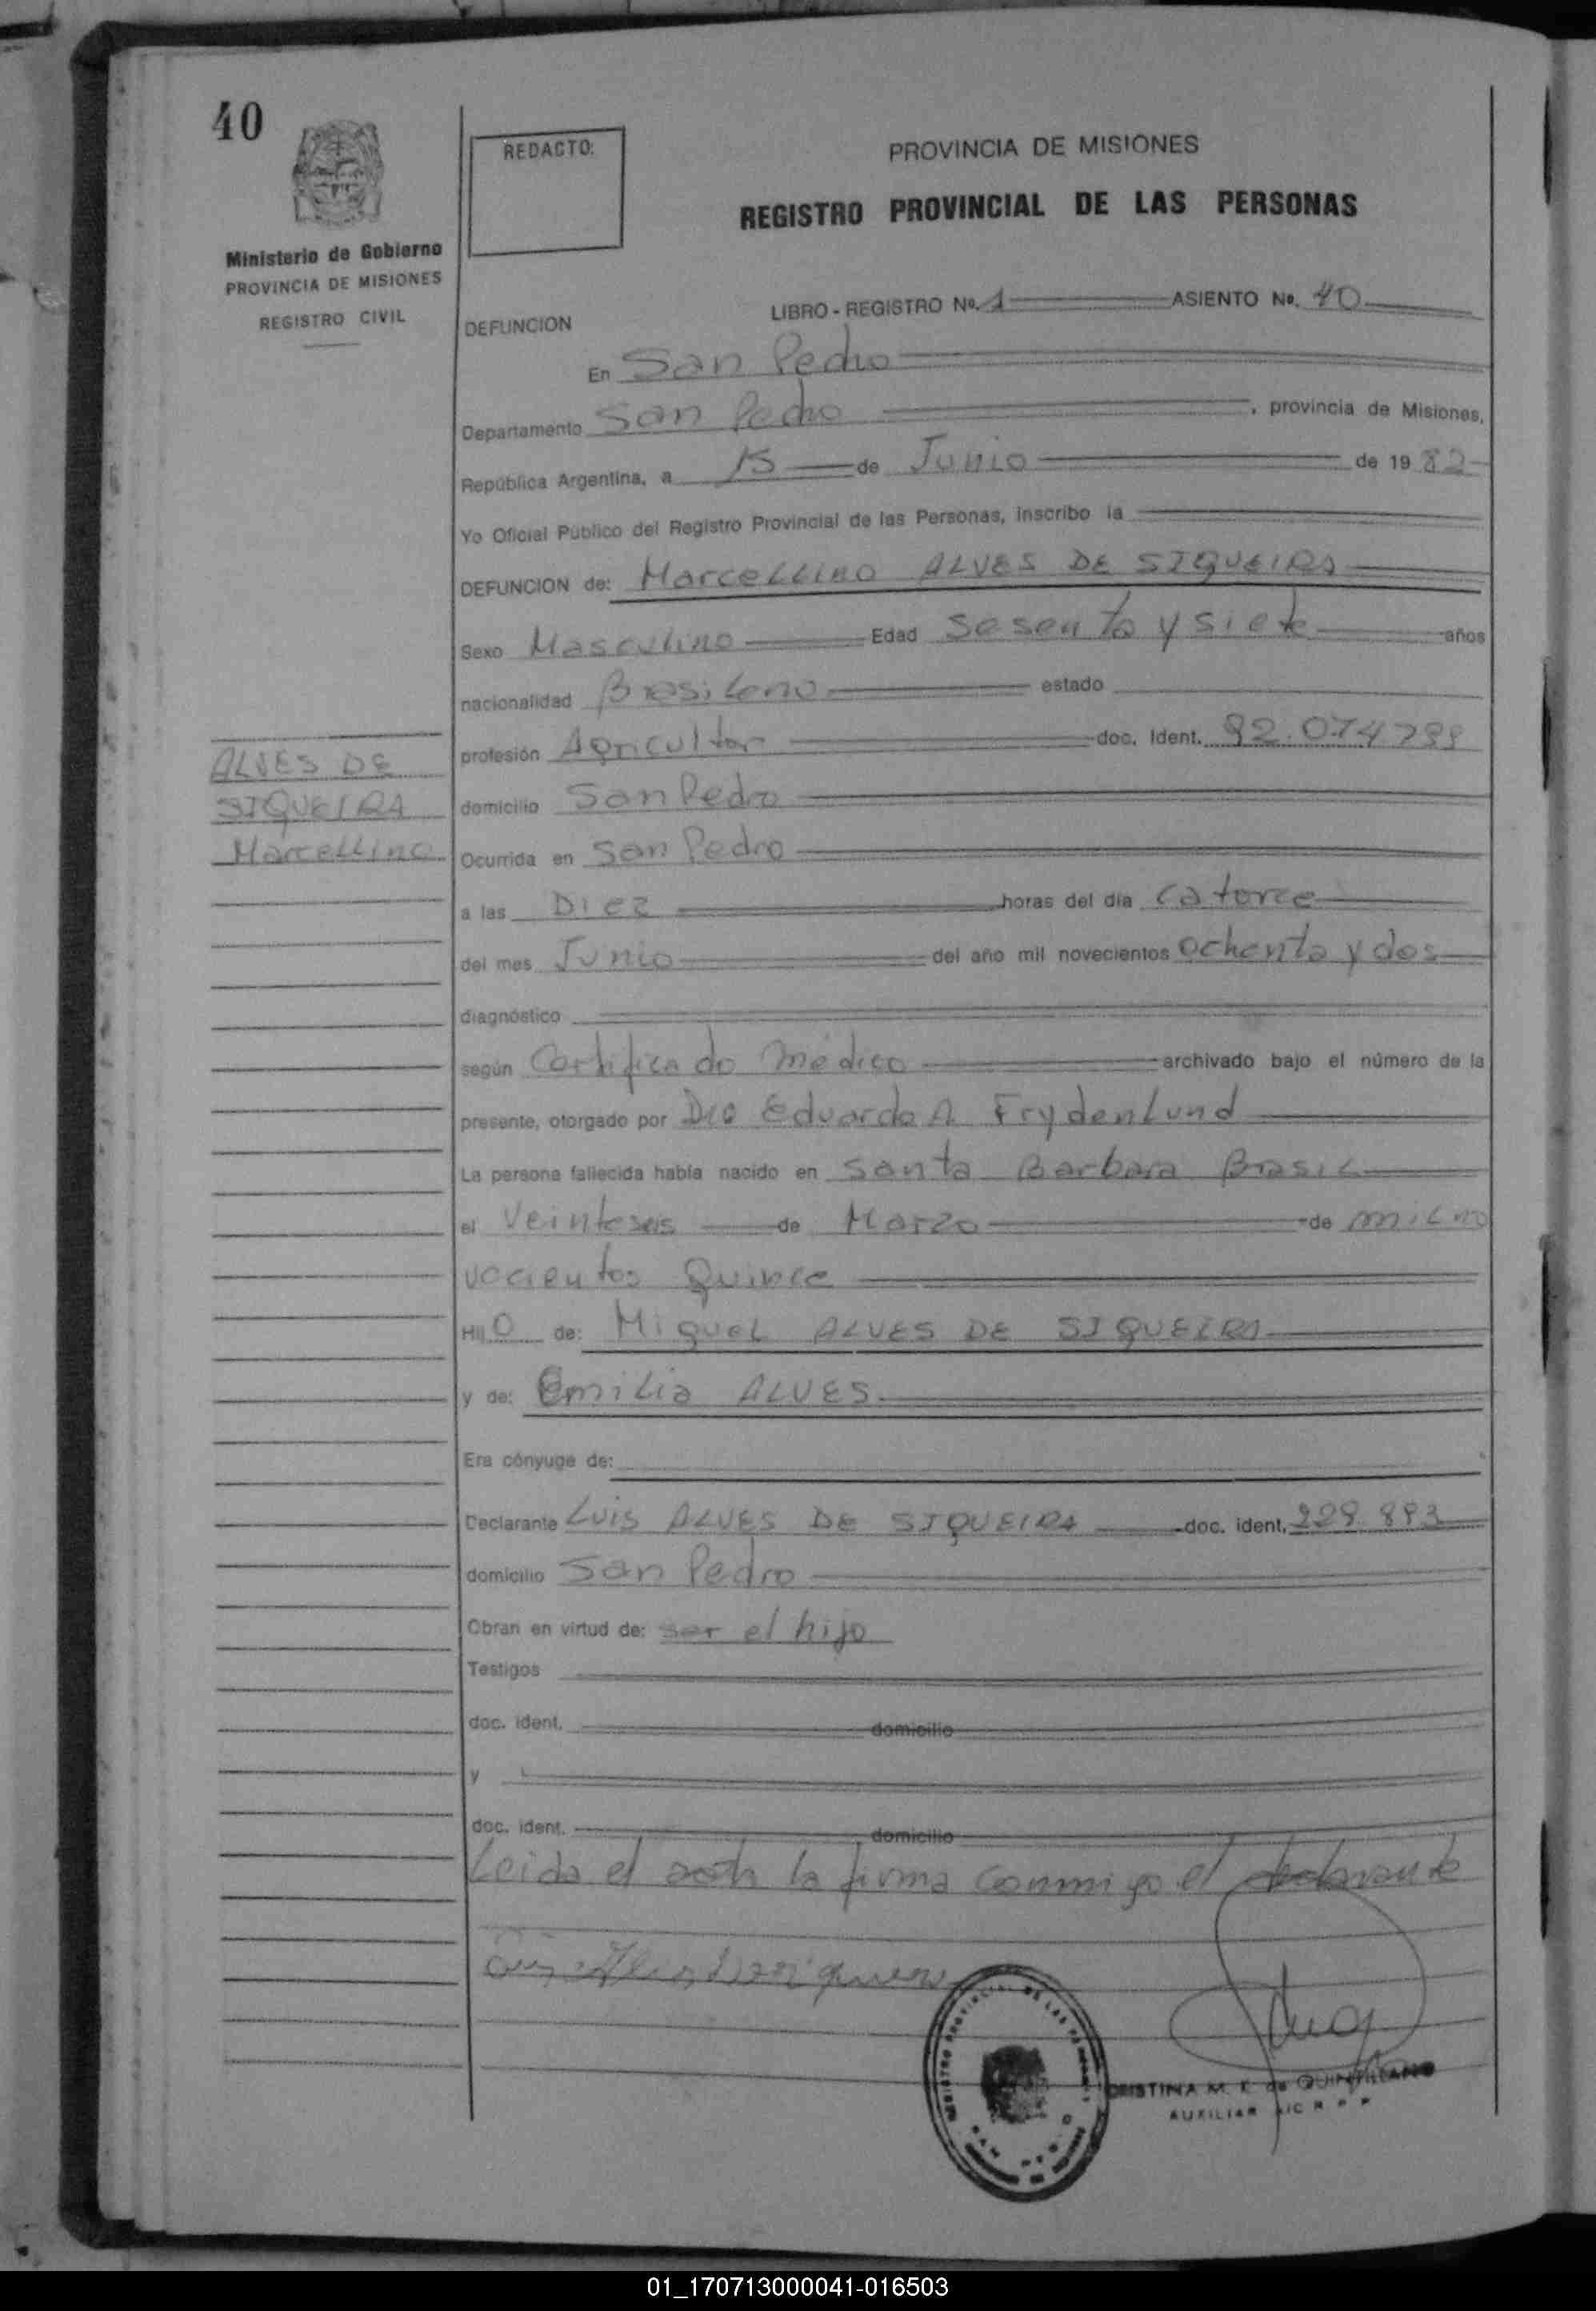 40
REDACTO:
PROVINCIA DE MISIONES
REGISTRO PROVINCIAL DE LAS PERSONAS
Ministerio de Gobierno
PROVINCIA DE MISIONES
REGISTRO CIVIL
LIBRO - REGISTRO Nº. 1 ASIENTO Nº. 40
DEFUNCION
En San Pedro
Departamento San Pedro , provincia de Misiones,
República Argentina, a 15 de Junio de 19 82
Yo Oficial Público del Registro Provincial de las Personas, inscribo la
DEFUNCION de: Marcellino ALVES DE SIQUEIRA
Sexo Masculino Edad Sesenta y siete años
nacionalidad Brasileno estado
profesión Agricultor doc. Ident. 92.074799
ALVES DE
SIQUEIRA
Marcellino
domicilio San Pedro
Ocurrida en San Pedro
a las Diez horas del día catorce
del mes Junio del año mil novecientos ochenta y dos
diagnóstico
según Certificado médico archivado bajo el número de la
presente, otorgado por Eduardo A. Frydenlund
La persona fallecida había nacido en Santa Barbara Brasil
el Veinteseis de Marzo de mil no
vecientos Quince
Hij o de: Miguel ALVES DE SIQUEIRA
y de: Emilia ALVES.
Era cónyuge de:
Declarante Luis ALVES DE SIQUEIRA doc. ident. 229.893
domicilio San Pedro
Obran en virtud de: ser el hijo
Testigos
doc. ident. domicilio
y
doc. ident. domicilio
Leida el acta la firma conmigo el declarante
CRISTINA M. E. de QUINTILIANO
AUXILIAR
01_170713000041-016503